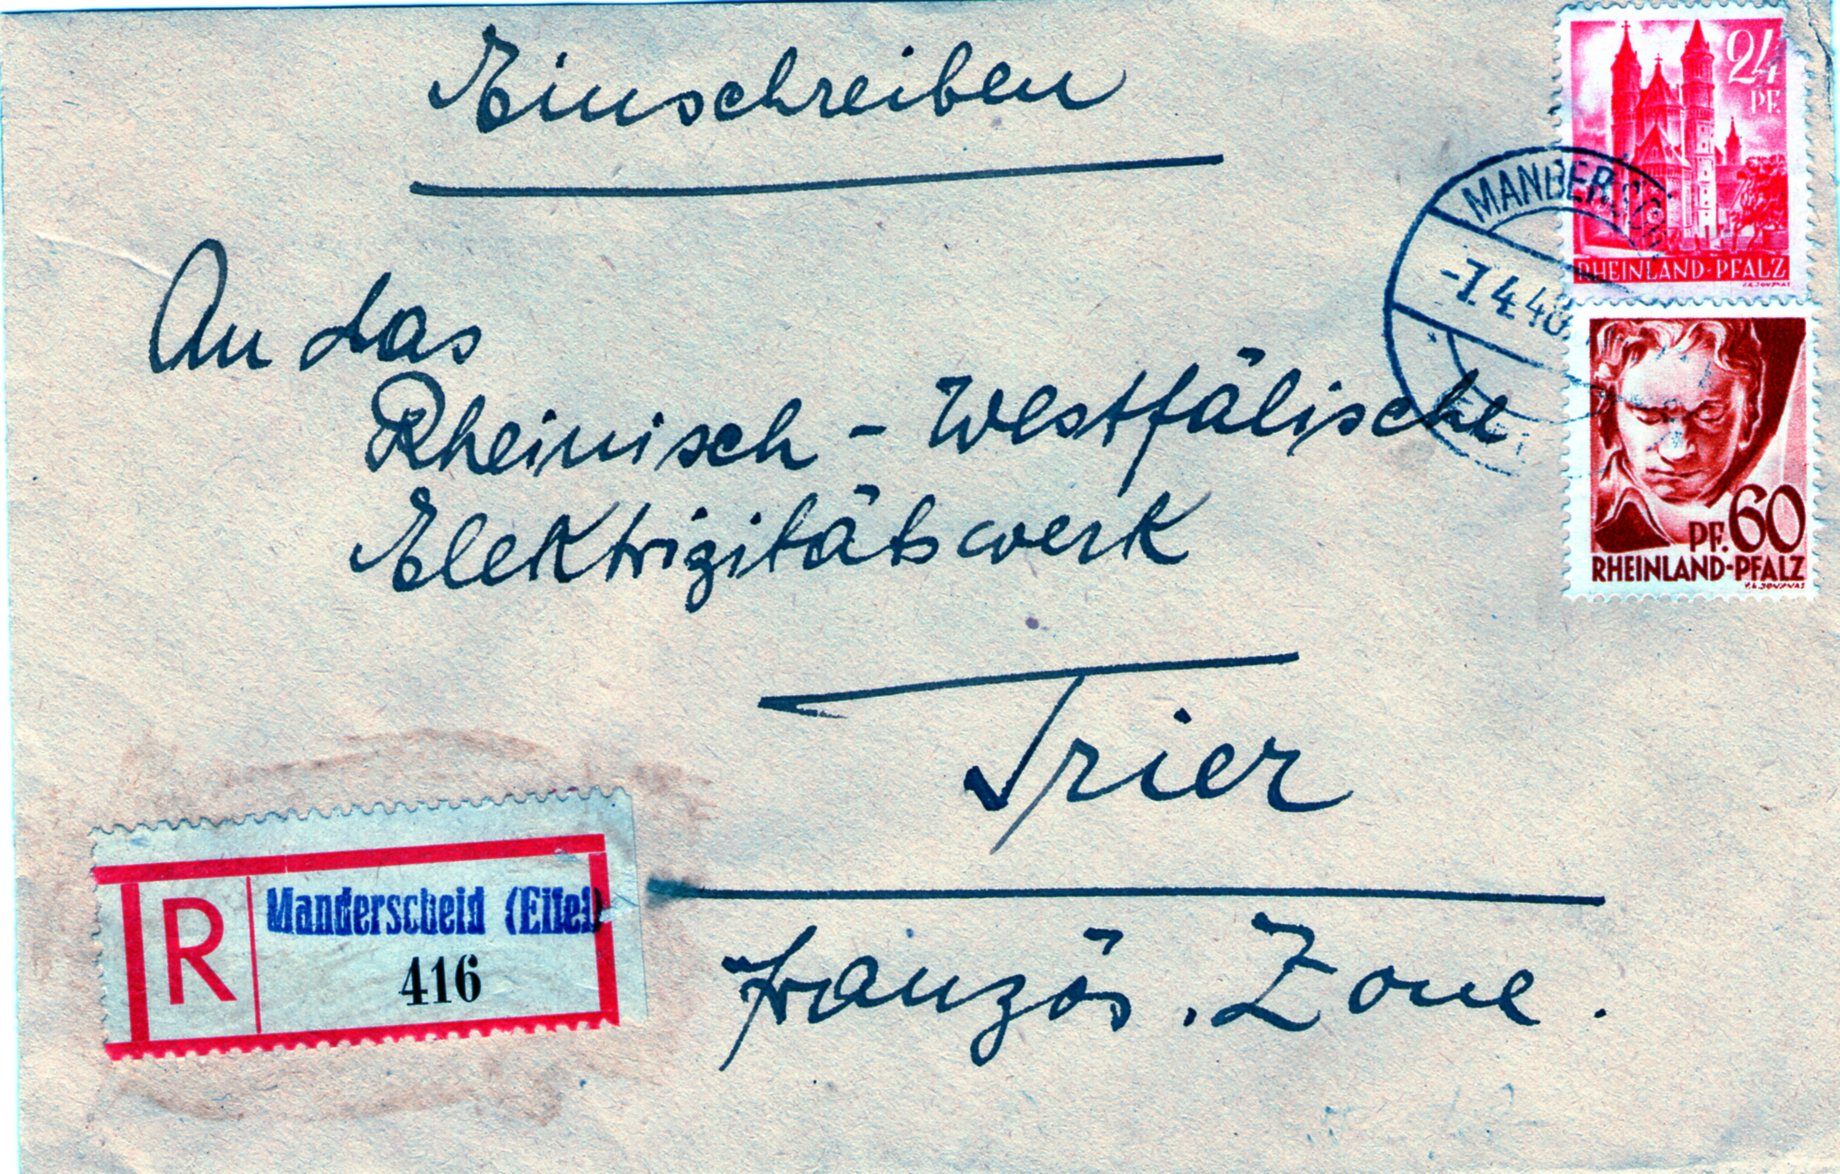 Einschreiben
24
PF.
RHEINLAND-PFALZ
-7.4.48
An das
Rheinisch - Westfälische
Elektrizitätswerk
PF. 60
RHEINLAND-PFALZ
Trier
R
Manderscheid (Eifel)
416
französ. Zone.